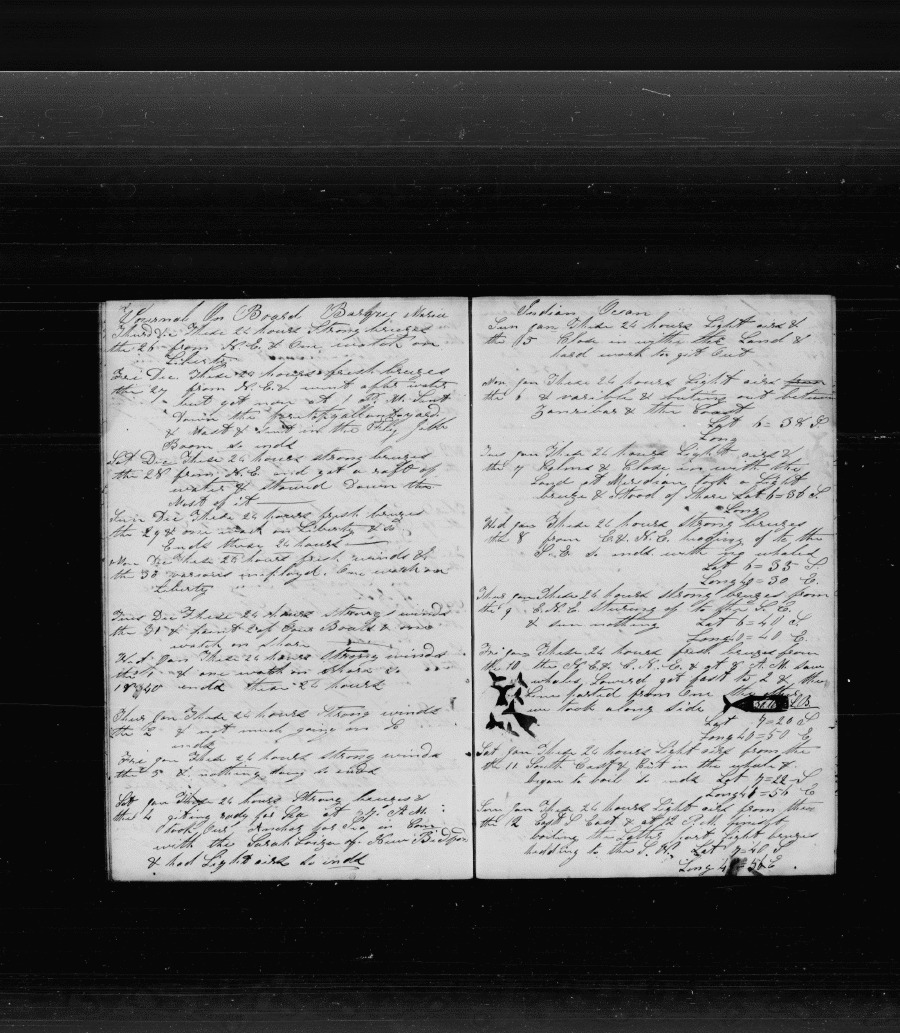 Journal On Board Barque Maria
Thurs Dec These 24 hours Strong breezes
the 26 from N. E. & One watch on
Liberty
Fri Dec These 24 hours fresh breezes
the 27 from N. E. & went after water
but got non at 1 P. M. Sent
Down the
& Mast & Sent in the Flyg Jibb
Boom so ends
Sat Dec These 24 hours strong breezes
the 28 from N. E. and got a raft of
water & stowed Down the
Most of it
Sun Dec These 24 hours fresh breezes
the 29 & one watch on Liberty & so
Ends these 24 hours
Mon Dec These 24 hours fresh winds &
the 30 varsous imployd. One watch on
Liberty
Tues Dec These 24 hours strong winds
the 31 & paint 2 of Our Boats & one
watch on Shore
Wed Jan These 24 hours Strong winds
the 1 & one watch on Shore so
1840 ends these 24 hours
Thurs Jan These 24 hours Strong winds
the 2 & not much going on So
ends
Fri Jan These 24 hours strong winds
the 3 & nothing doing so ends
Sat Jan These 24 hours Strong breezes &
the 4 giting redy for Sea at 7 A. M.
took Our Anchor for Sea in Com
with the Sarah Louiza of New Bedford
& had Light airs So ends
Indian Ocean
Sun Jan These 24 hours Light airs &
the 5 Close in with the Land &
hard work to get Out
Mon Jan These 24 hours Light airs
the 6 & varible & beating out between
Zanzibar & the Coast
Lat 6=38 S
Long
Tues Jan These 24 hours Light airs &
the 7 Calms & Close in with the
Land at Meridian took a Light
breeze & Stood of Shore Lat 6=36 S
Long
Wed Jan These 24 hours strong breezes
the 8 from E & N. E. heading of to the
S. E. so ends with no whales
Lat 6=35 S
Long 40=30 E.
Thurs Jan These 24 hours strong breezes from
the 9 E. N. E. stearing of to the S. E.
& saw nothing Lat 6=40 S
Long 40=40 E.
Fri Jan These 24 hours fresh breezes from
the 10 the N. E. & E. N. E. & at 8 A. M. saw
whales, Lowerd got fast to 2 & the
Line parted from One the other
we took along side LB
Lat 7=20 S
Long 40=50 E
Sat Jan These 24 hours Light airs from the
the 11 South East & Cut in the whale &
began to boil so ends Lat 7=22 S
Long 40=56 E
Sun Jan These 24 hours Light airs from the
the 12 East & S East & at 12 P. M. finisht
boiling the Latter part light breezes
heading to the S. W. Lat 7=40 S
Long 40=56 E